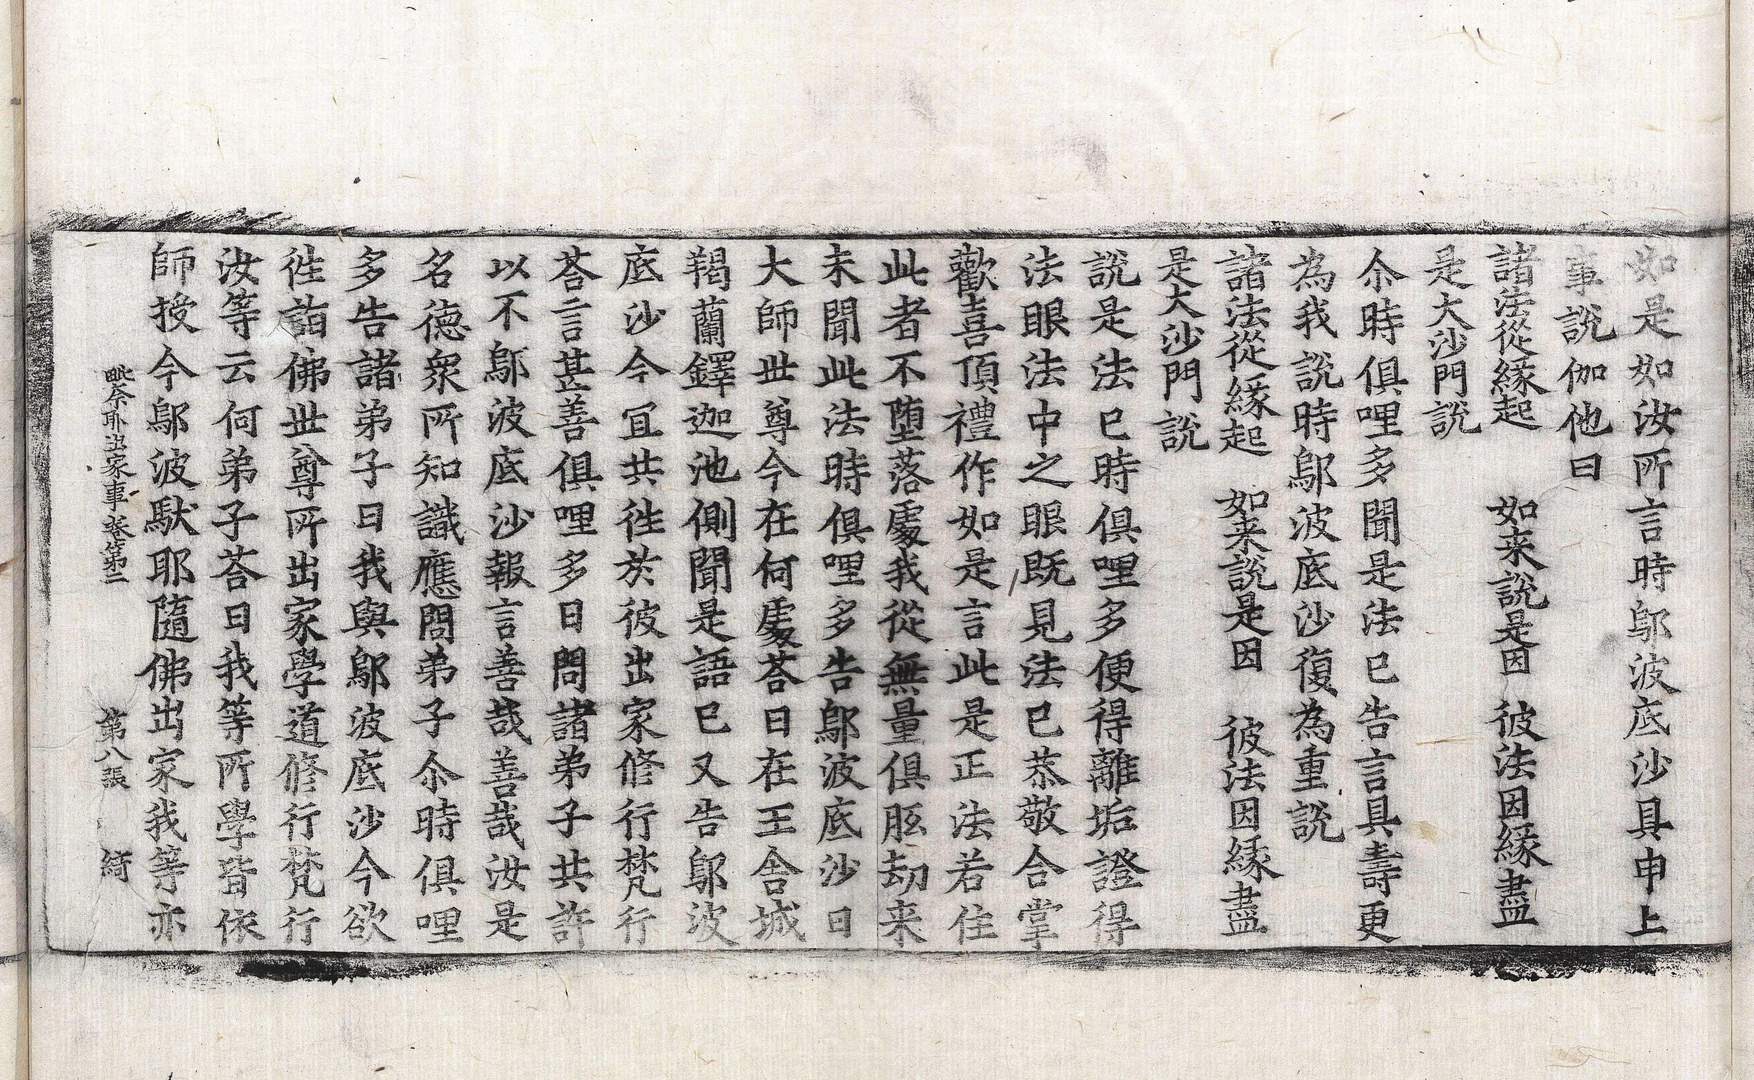 如是如汝所言時鄔波底沙具申上
事說伽他曰
諸法從緣起　如来說是因　彼法因緣盡
是大沙門說
尒時俱哩多聞是法已告言具壽更
為我說時鄔波底沙復為重說
諸法從緣起　如来說是因　彼法因緣盡
是大沙門說
說是法已時俱哩多便得離垢證得
法眼法中之眼旣見法已恭敬合掌
歡喜頂禮作如是言此是正法若住
此者不墮落處我從無量俱胝劫来
未聞此法時俱哩多告鄔波底沙曰
大師世尊今在何處荅曰在王舍城
羯蘭鐸迦池側聞是語已又告鄔波
底沙今冝共徃於彼出家修行梵行
荅言甚善俱哩多曰問諸弟子共許
以不鄔波底沙報言善哉善哉汝是
名德衆所知識應問弟子尒時俱哩
多告諸弟子曰我與鄔波底沙今欲
徃詣佛世尊所出家學道修行梵行
汝等云何弟子荅曰我等所學皆依
師授今鄔波馱耶隨佛出家我等亦
毗奈耶出家事卷第二　第八張　綺